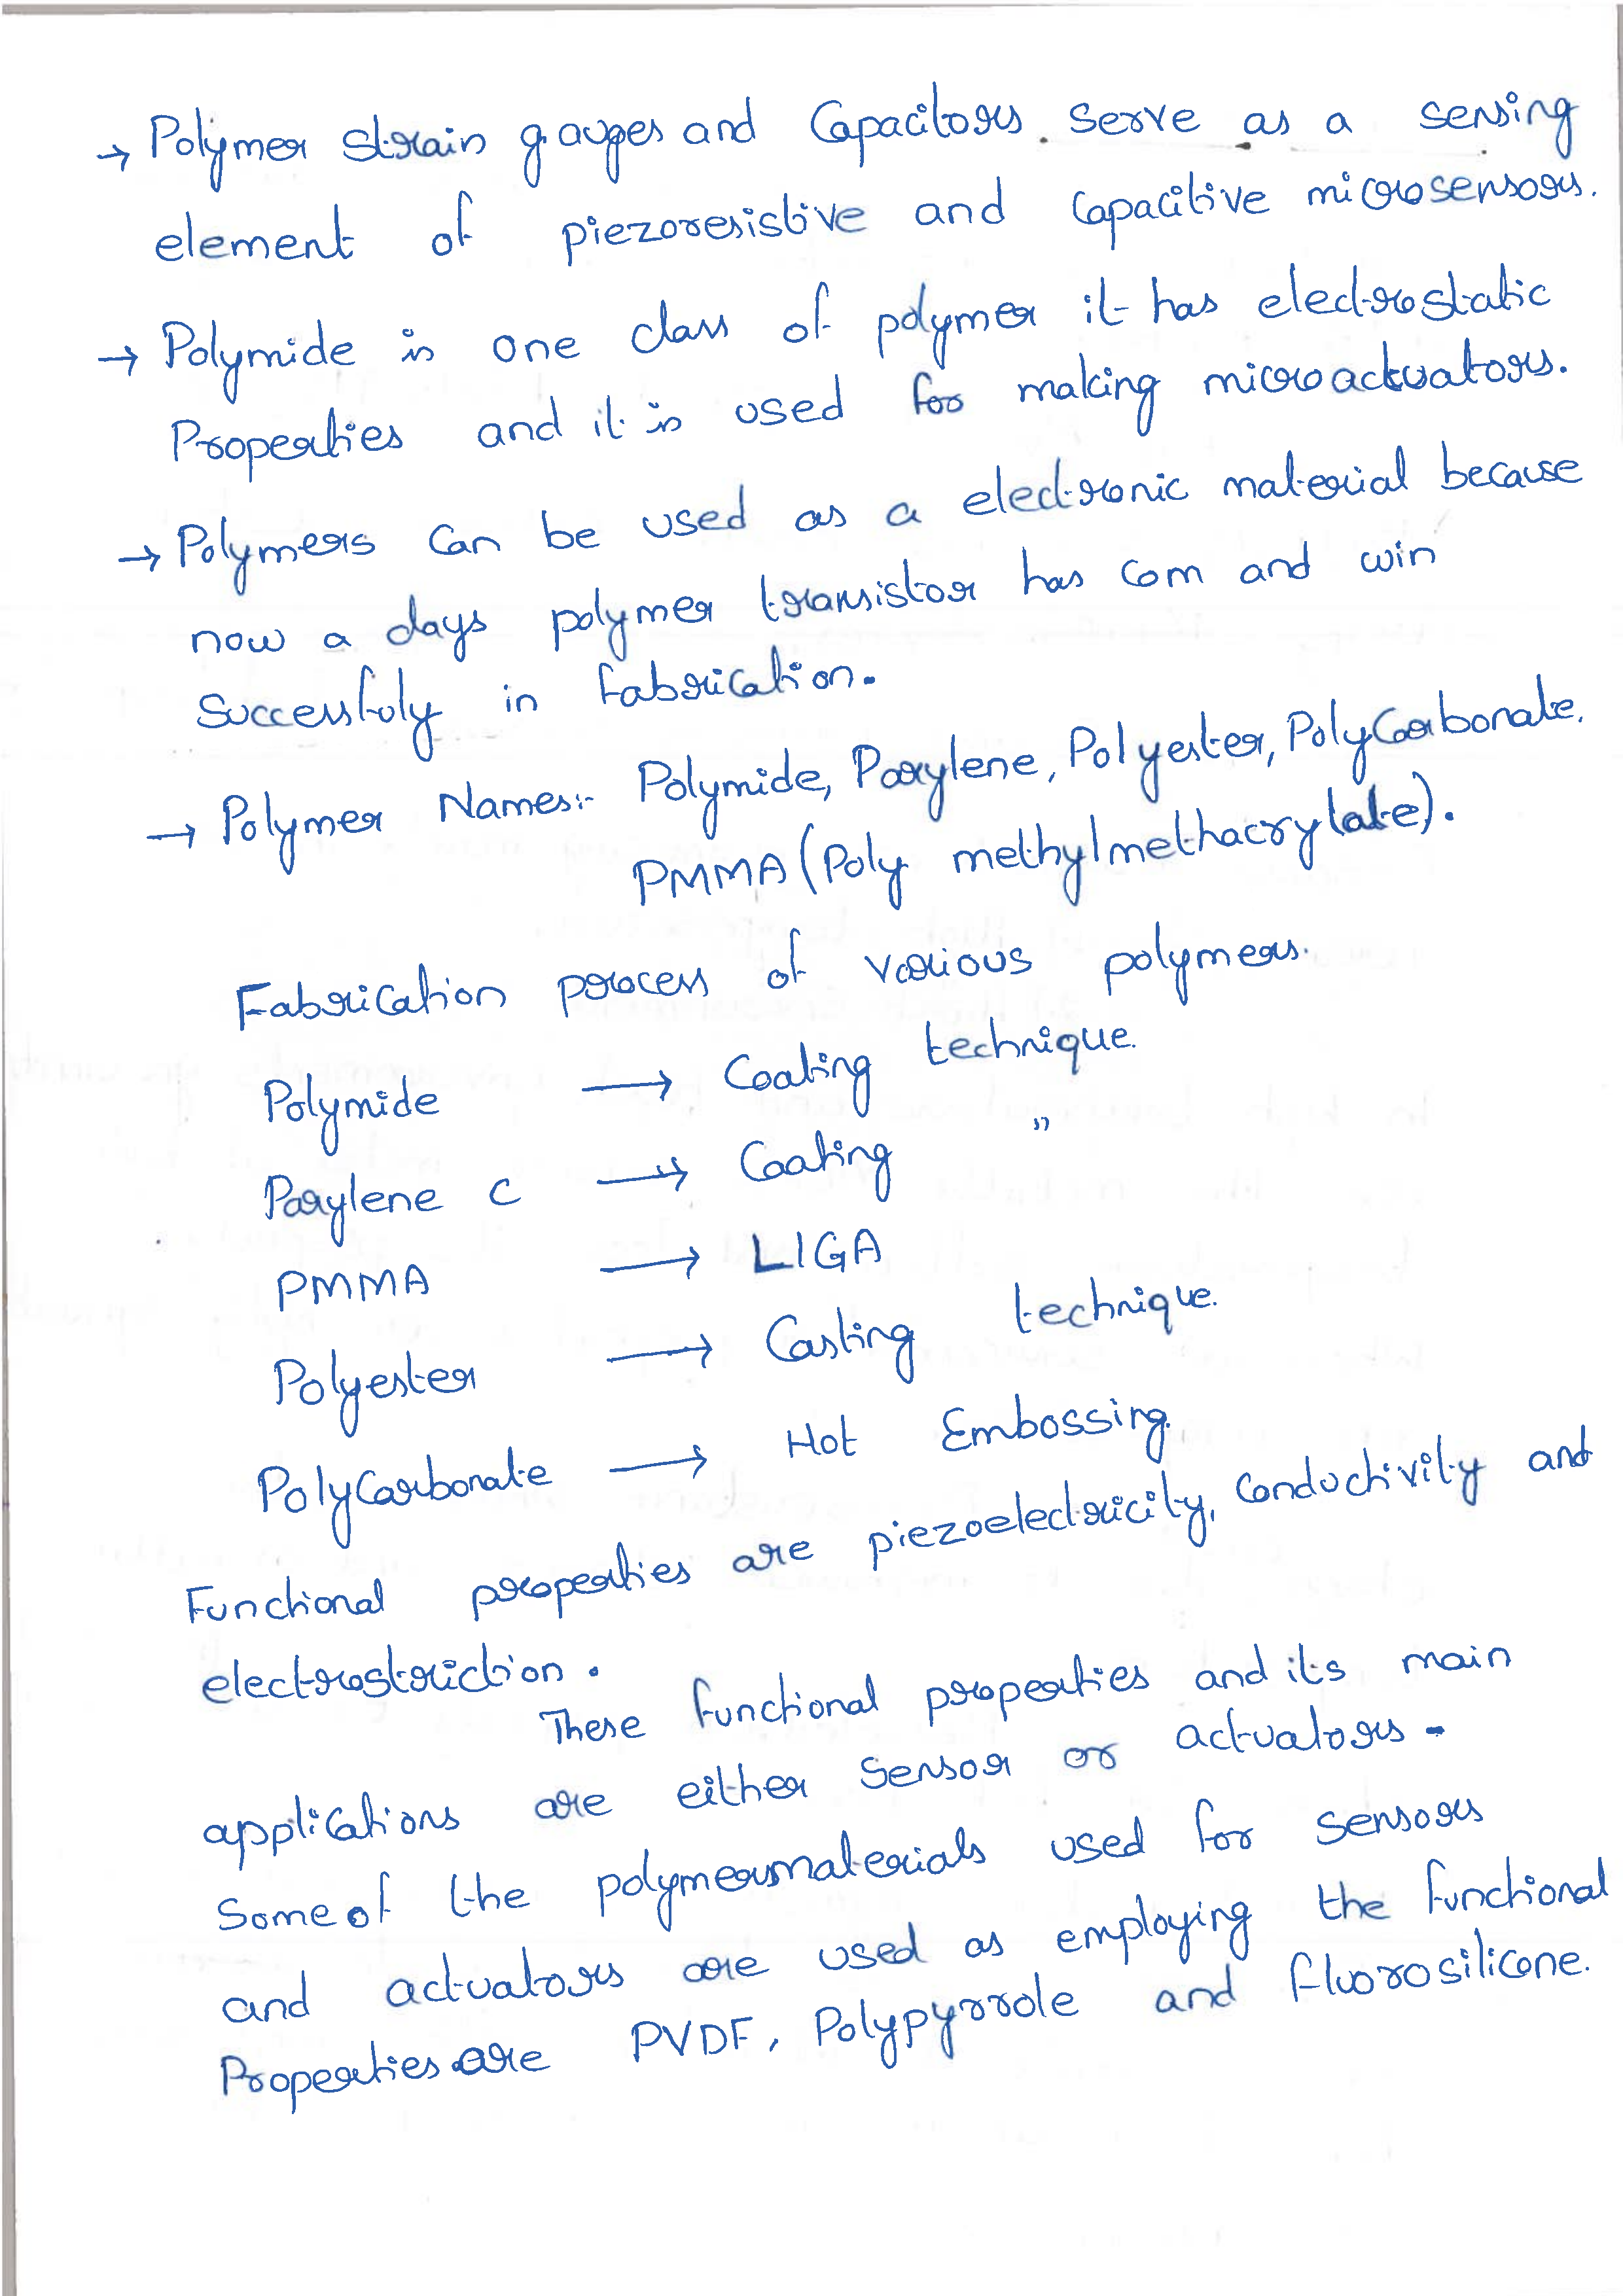 → Polymer strain gauges and Capacitors serve as a sensing
element of piezoresistive and capacitive microsensors.
→ Polymide is one class of polymer it has electrostatic
Properties and it is used for making microactuators.
→ Polymers can be used as a electronic material because
now a days polymer transistor has com and win
Successfuly in fabrication.
→ Polymer Names:- Polymide, Parylene, Polyester, PolyCarbonate.
PMMA (Poly methylmethacrylate).
Fabrication process of various polymers.
Polymide → Coating technique.
Parylene C → Coating "
PMMA → LIGA
Polyester → Casting technique.
PolyCarbonate → Hot Embossing.
Functional properties are piezoelectricity, Conductivity and
electrostriction.
These functional properties and its main
applications are either Sensor or actuators.
Some of the polymersmaterials used for sensors
and actuators are used as employing the functional
Properties are PVDF, Polypyrrole and fluorosilicone.